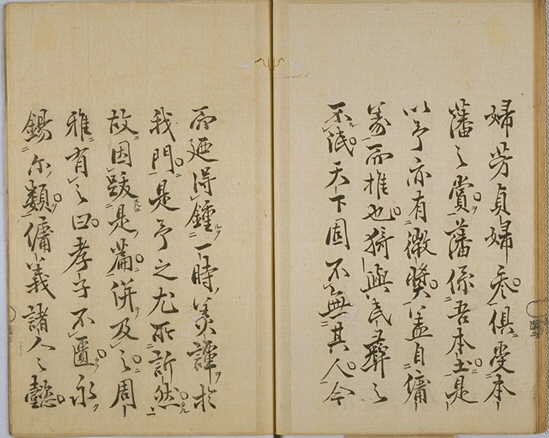 婦芳貞婦〻俱受本
藩之賞藩係吾本土是
以予亦有微奬盖自傭
義而推也猗與民彝之
不泯天下固不無其人今
而廼得鍾一時美謹於
我門是予之尤所訢然
故因跋是篇併及之周
雅有之曰孝子不匱永
錫尓類傭義諸人之懿